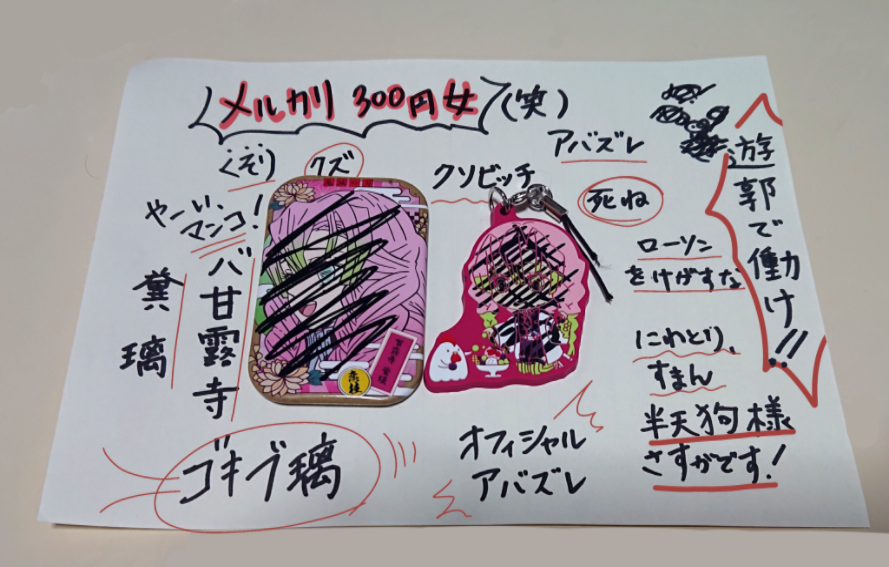 メルカリ 300円女(笑)
くそり
クズ
クソビッチ
アバズレ
死ね
やーい、
マンコ!
バ甘露寺
糞璃
ローソン
をけがすな
遊郭で働け!!
にわとり、
すまん
半天狗様
さすがです!
ゴキブ璃
オフィシャル
アバズレ
恋柱